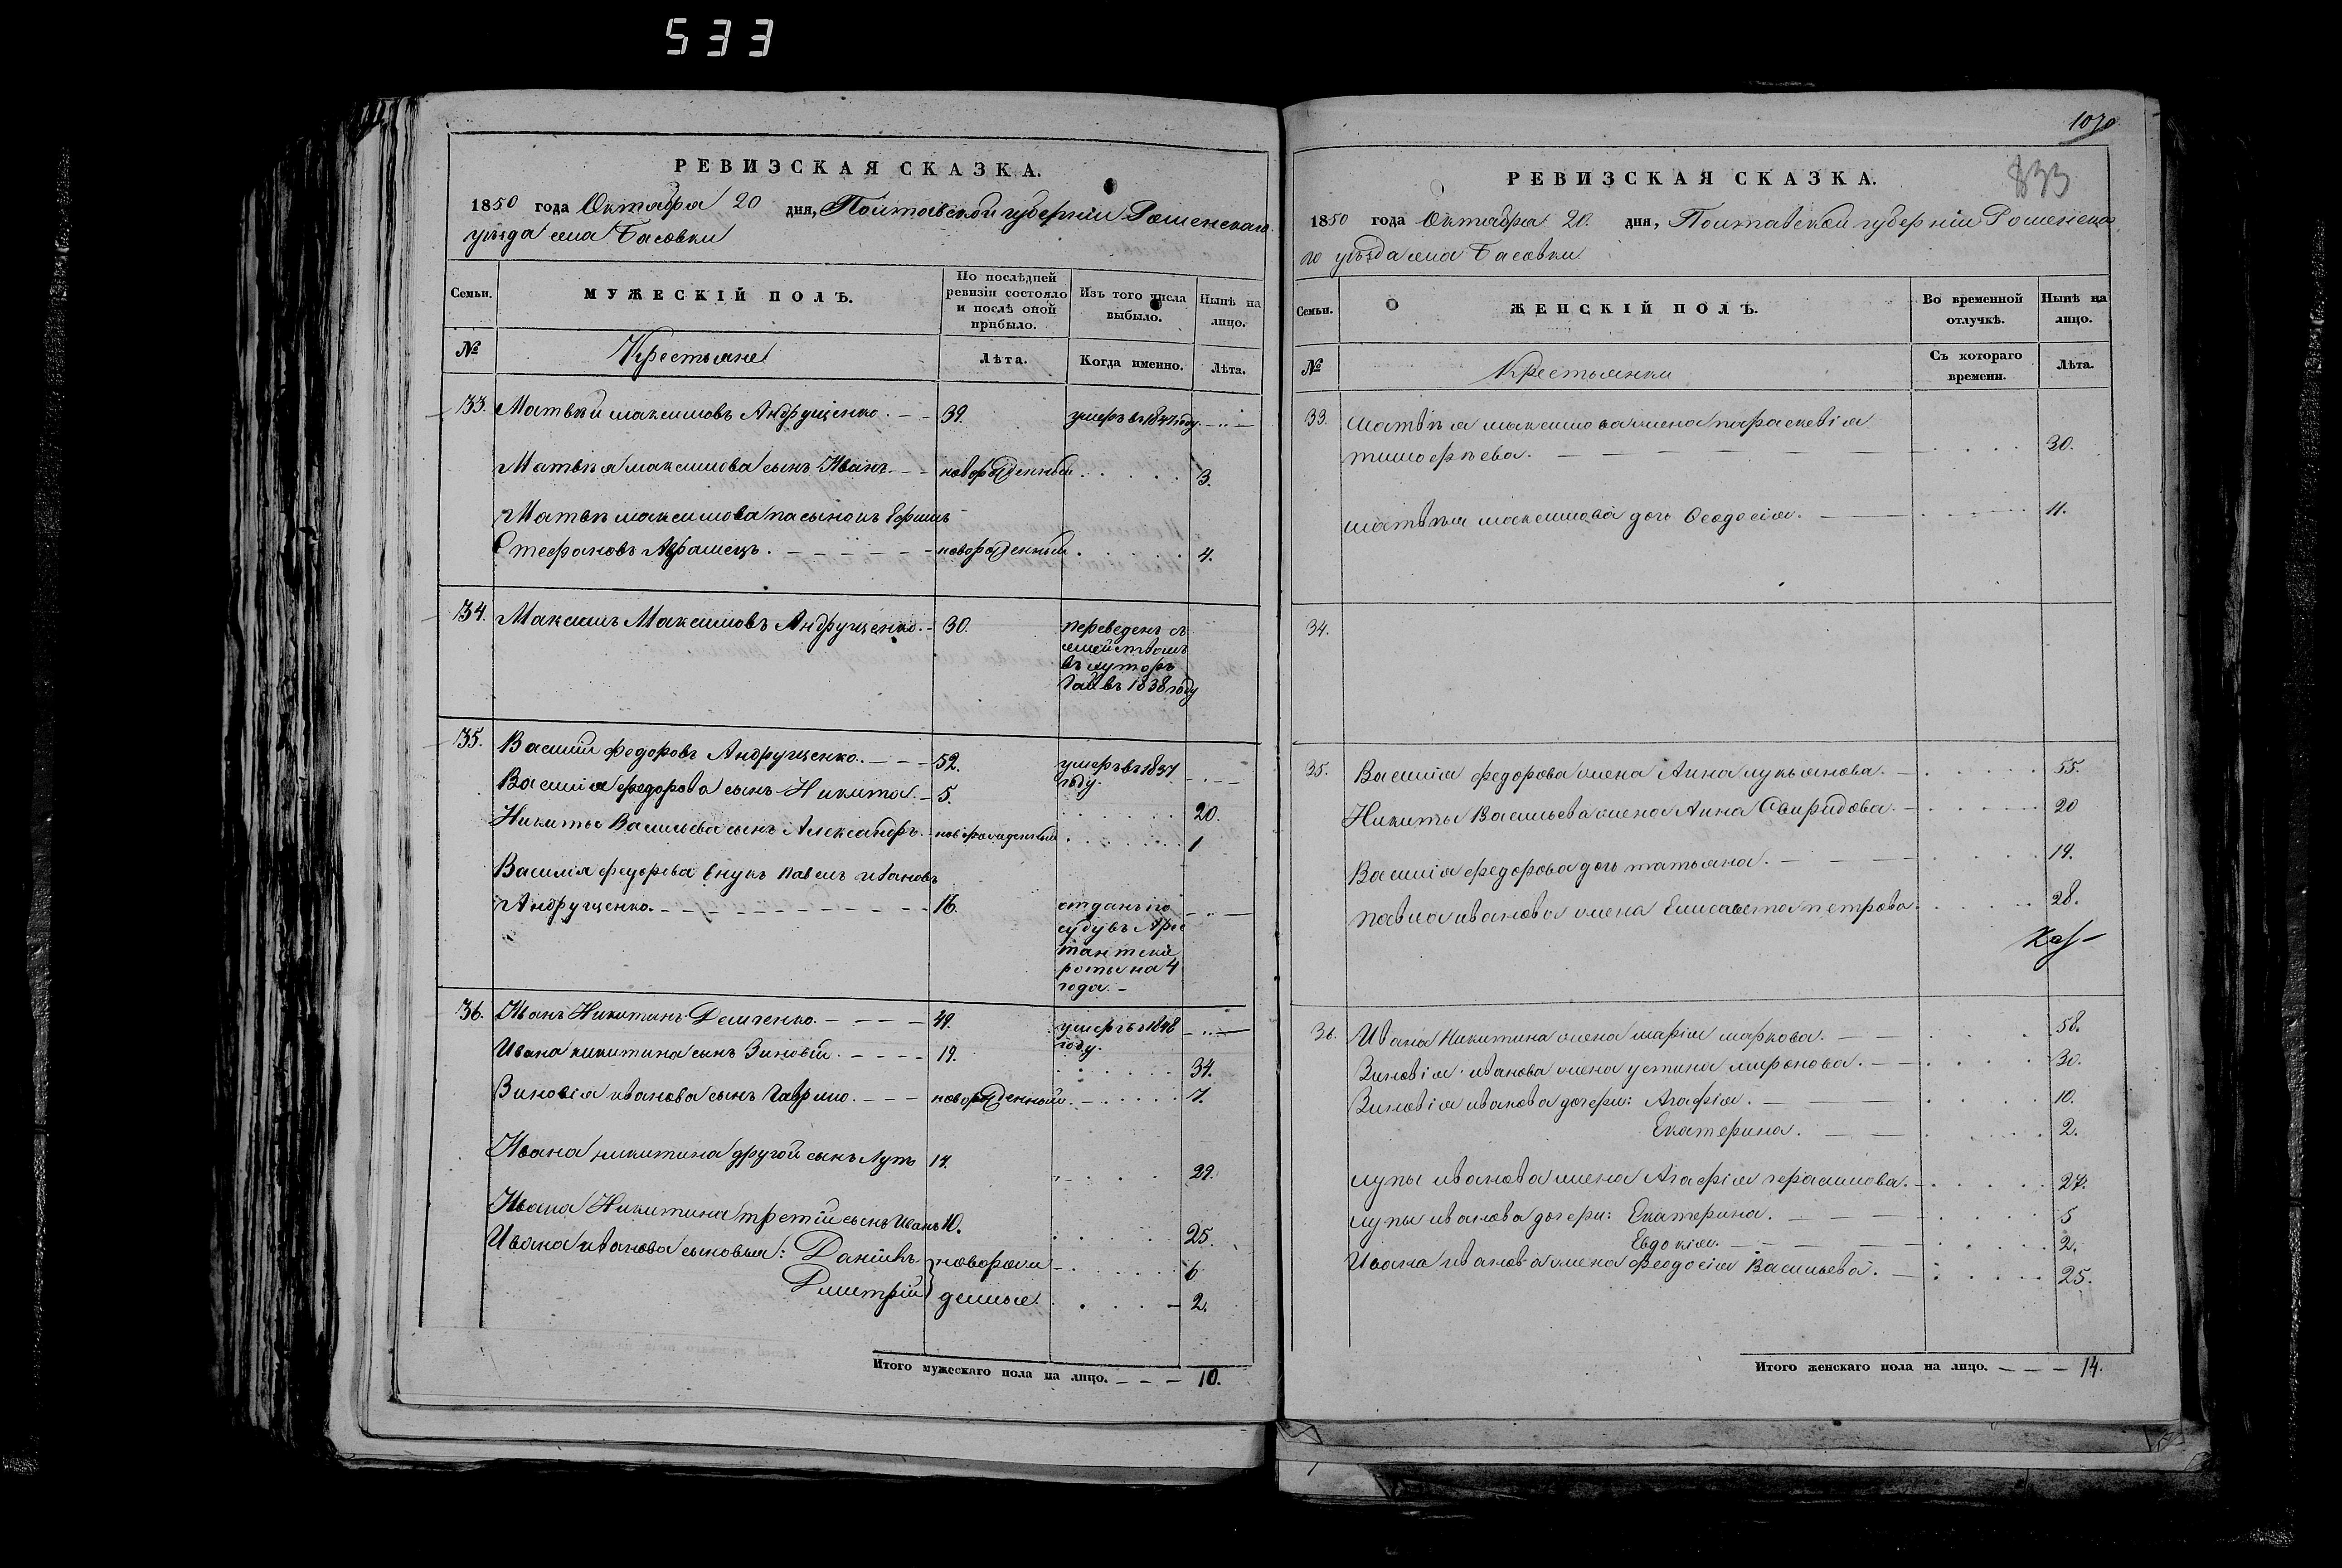 533
РЕВИЗСКАЯ СКАЗКА.
1850 года Октября 20 дня, Полтавской губернiи Роменскаго
уѣзда села Басовки
Семьи.
МУЖЕСКIЙ ПОЛЪ.
По послѣдней
ревизiи состояло
и послѣ оной
прибыло.
Изъ того числа
выбыло.
Нынѣ на
лицо.
№
Крестьяне
Лѣта.
Когда именно.
Лѣта.
33. Матвѣй Максимовъ Андрущенко. 39. умеръ въ году
Матвѣя Максимова сынъ Иванъ новорожденный 3.
Матвѣя Максимова пасынокъ Ефимъ
Стефановъ новорожденный 4.
34. Максимъ Максимовъ Андрущенко. 30. переведенъ съ
семействомъ
въ хуторъ
Гай въ 1838 году
35. Василiй Федоровъ Андрущенко. 52. умеръ въ 1837
году.
Василiя Федорова сынъ Никита. 5. 20.
Никиты Васильева сынъ Александръ новорожденный 1
Василiя Федорова внукъ Павелъ Ивановъ
Андрущенко. 16. отданъ по
суду въ Арес
тантскiя
роты на 4
года.
36. Иванъ Никитинъ Демченко. 49. умеръ въ 1848
году.
Ивана Никитина сынъ Зиновiй. 19. 34.
Зиновiя Иванова сынъ Гаврило. новорожденный. 7.
Ивана Никитина другой сынъ Лупъ 14. 29.
Ивана Никитина третiй сынъ Иванъ 10. 25.
Ивана Иванова сыновья: Данiилъ новорож 6
Дмитрiй денные. 2.
Итого мужескаго пола на лицо. 10.
1070
833
РЕВИЗСКАЯ СКАЗКА.
1850 года Октября 20. дня, Полтавской губернiи Роменска
го уѣзда села Басовки
Семьи.
ЖЕНСКIЙ ПОЛЪ.
Во временной
отлучкѣ.
Нынѣ на
лицо.
№
Крестьянки
Съ котораго
времени.
Лѣта.
33. Матвѣя Максимова жена Параскевiя
Тимофѣева. 30.
Матвѣя Максимова дочь Феодосiя. 11.
34.
35. Василiя Федорова жена Анна Лукьянова. 55.
Никиты Васильева жена Анна Свиридова. 20
Василiя Федорова дочь Татьяна. 14.
Павла Иванова жена Елисавета Петрова. 28.
36. Ивана Никитина жена Марiя Маркова. 58.
Зиновiя Иванова жена Устина Миронова. 30.
Зиновiя Иванова дочери: Агафiя. 10.
Екатерина. 2.
Лупы Иванова жена Агафiя Герасимова. 27.
Лупы Иванова дочери: Екатерина. 5
Евдокiя. 2.
Ивана Иванова жена Феодосiя Васильева. 25.
Итого женскаго пола на лицо. 14.